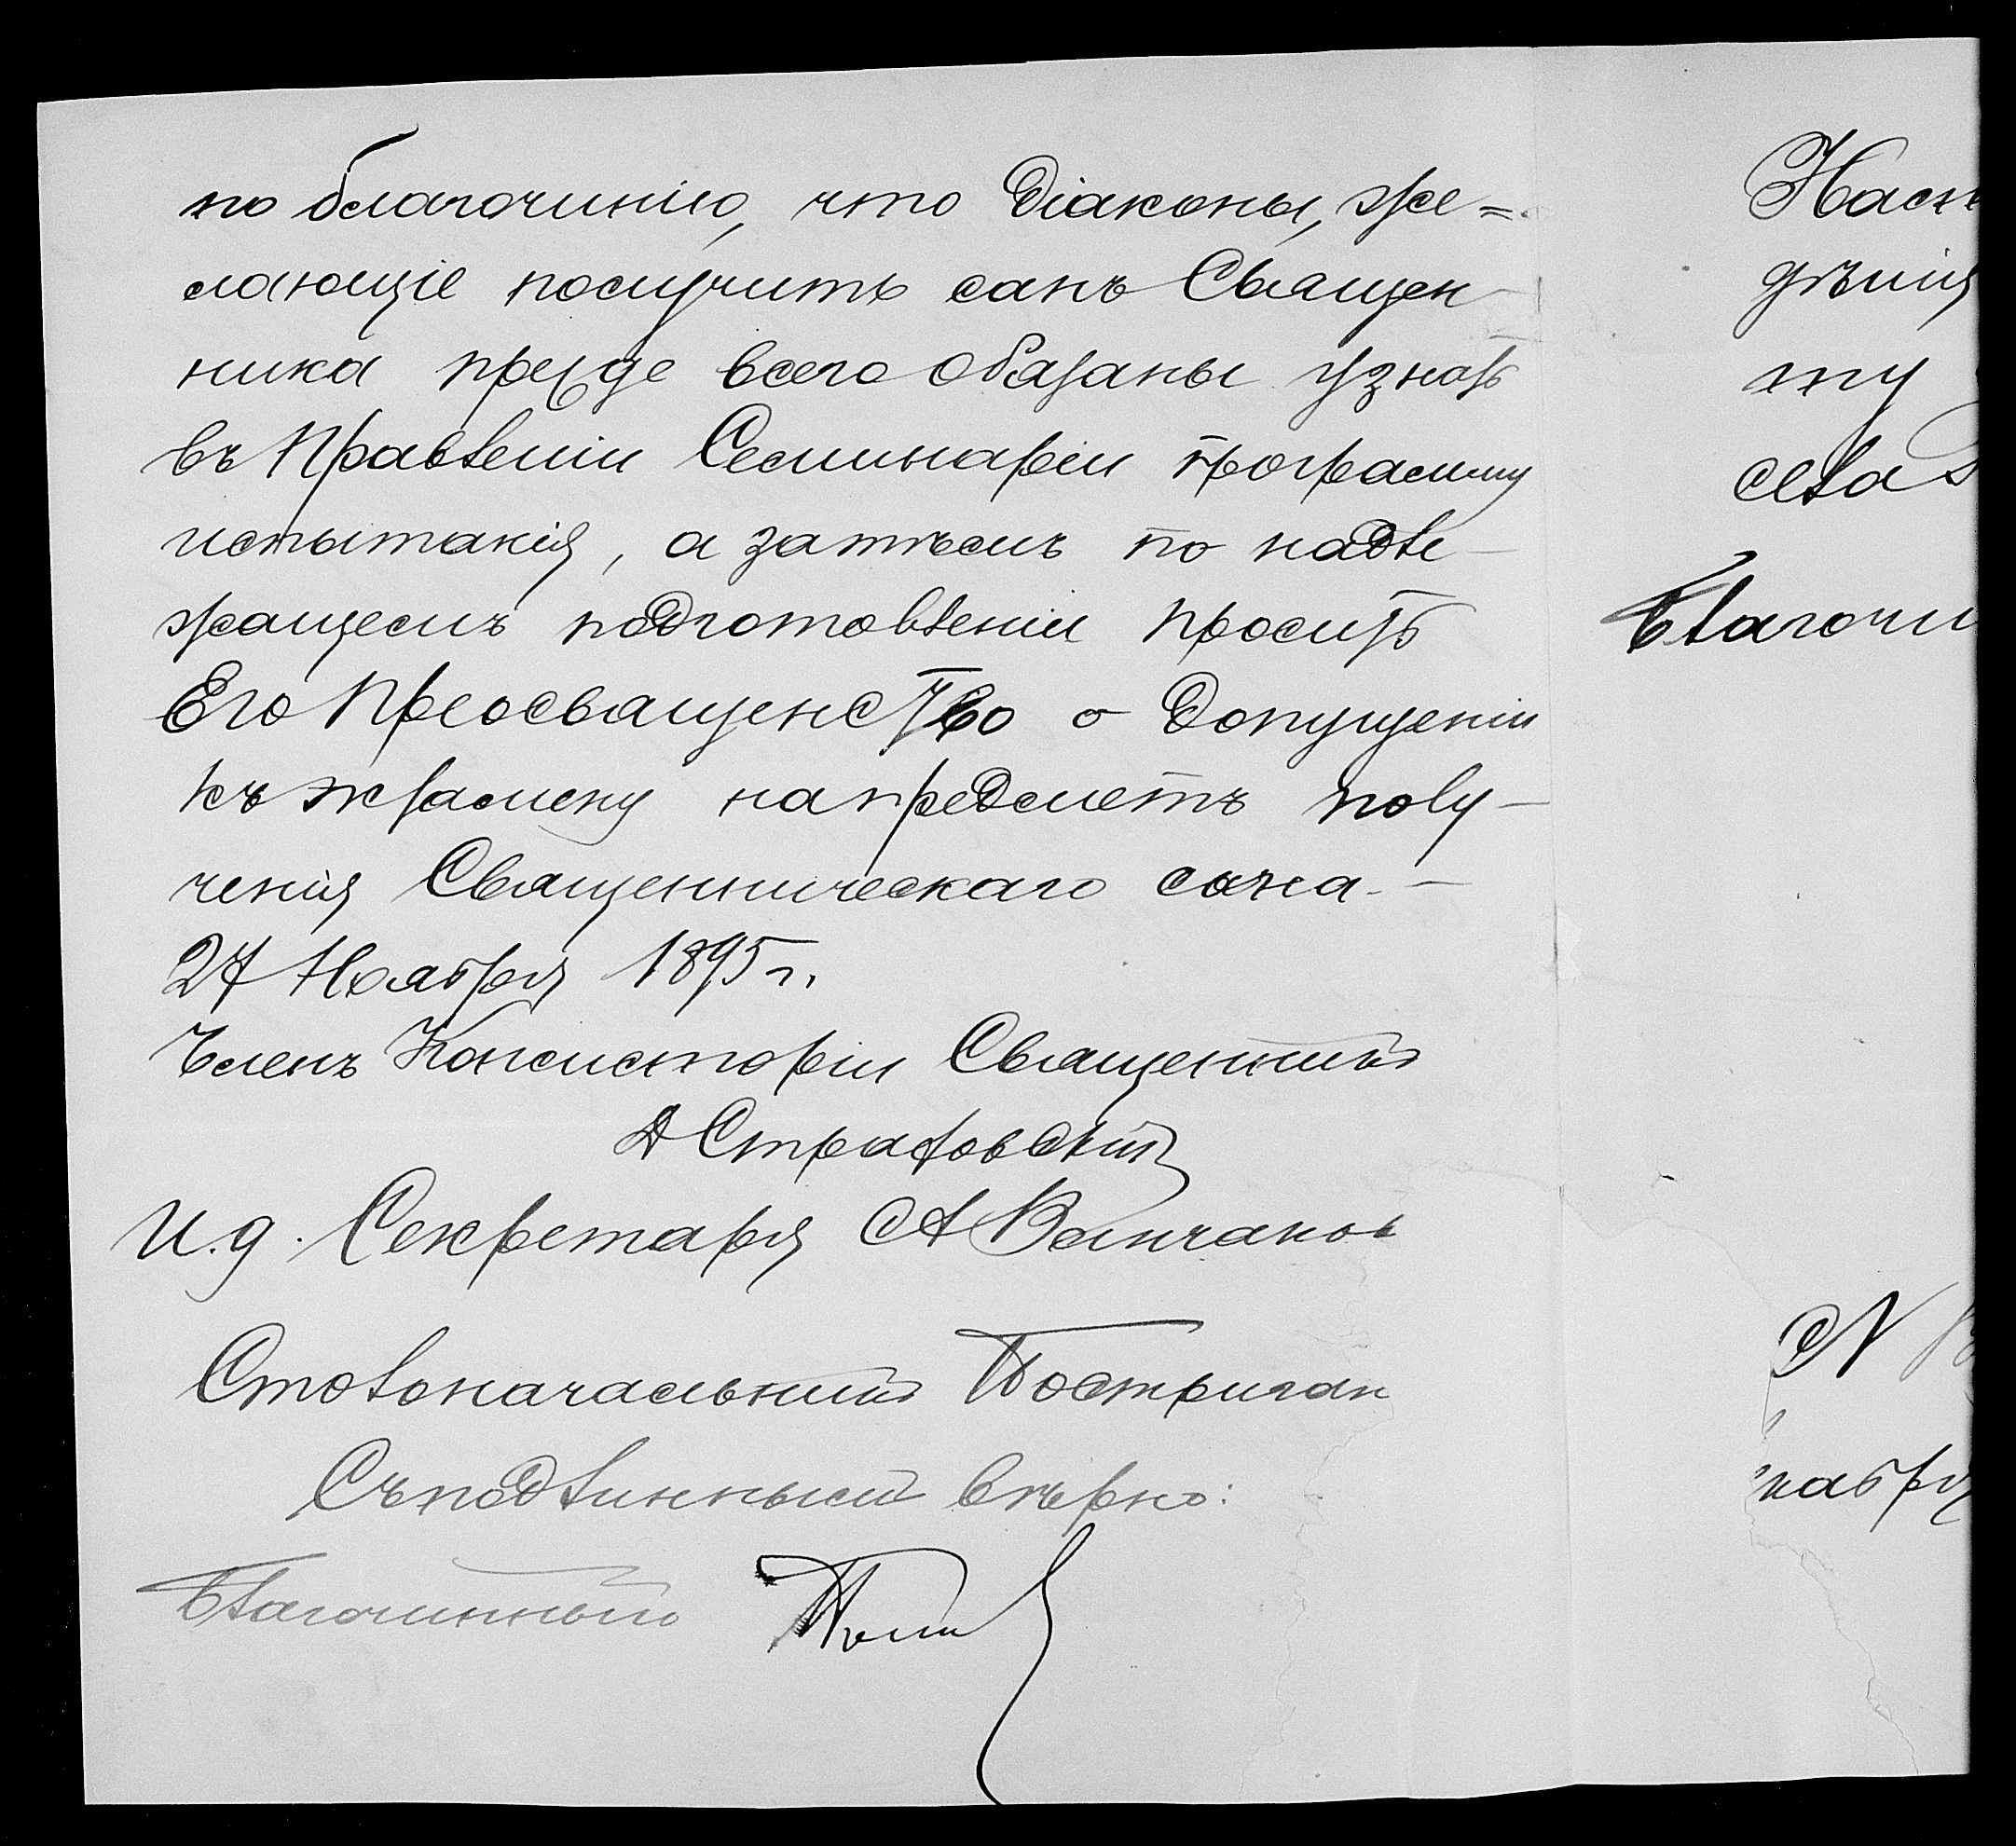 по благочинію, что Діаконы, же=
лающіе получить санъ Священ-
ника прежде всего обязаны узнать
въ Правленіи Семинаріи программу
испытанія, а затѣмъ по надле-
жащемъ подготовленіи просить
Его Преосвященство о допущеніи
къ экзамену на предметъ полу-
ченія Священническаго сана. -
27 Ноября 1895 г.
Членъ Консисторіи Священникъ
И. д. Секретаря А
Столоначальникъ Постриган
Съ подлиннымъ вѣрно:
Благочинный
Наст
дѣнія
ту
села
Благочи
N
ноября